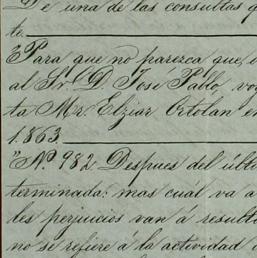 De una de las consultas q
te.
"Para que no parezca que, o
al Sr. D. José Pablo, voy
ta Mr. Elziar Ortolan en
1.863
"Nº 982. Despues del últi
terminada: mas cual va a
les perjuicios van á result
no se refiere á la actividad